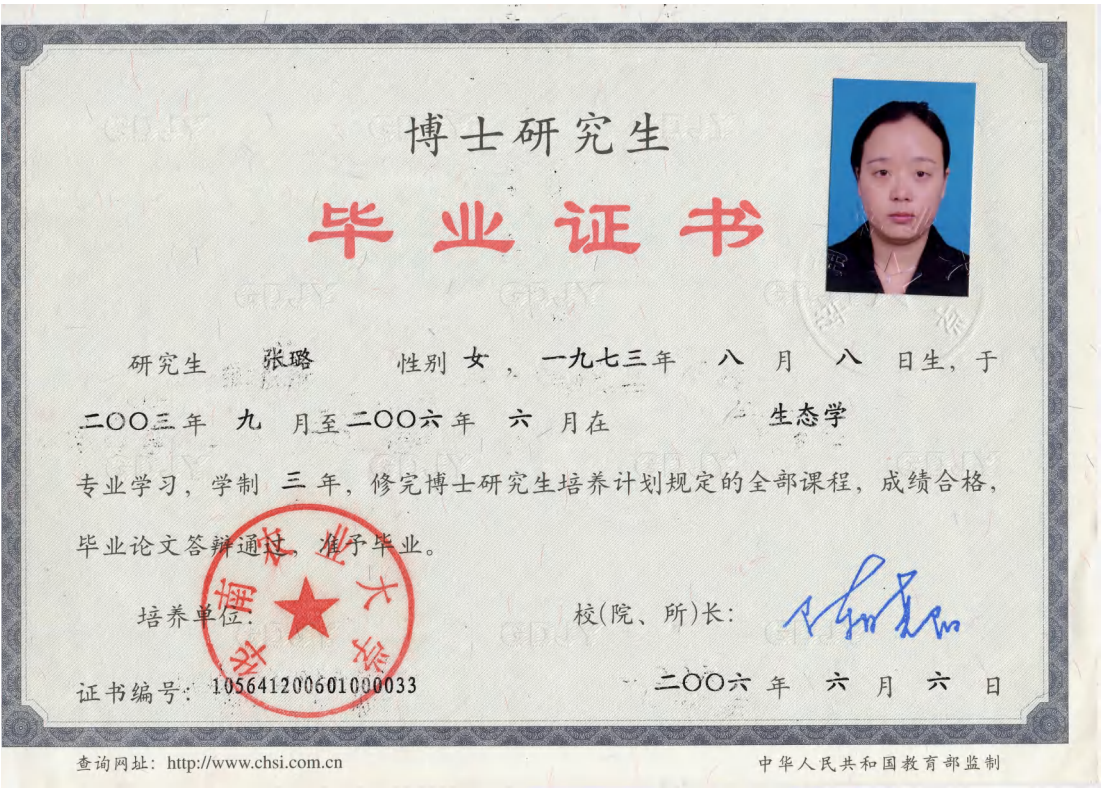 博士研究生
毕业证书
研究生 张璐 性别 女 ， 一九七三 年 八 月 八 日生，于
二〇〇三 年 九 月至 二〇〇六 年 六 月在 生态学
专业学习，学制 三 年，修完博士研究生培养计划规定的全部课程，成绩合格，
毕业论文答辩通过，准予毕业。
华南农业大学
培养单位： 校(院、所)长：
证书编号：105641200601000033 二〇〇六 年 六 月 六 日
查询网址：http://www.chsi.com.cn 中华人民共和国教育部监制